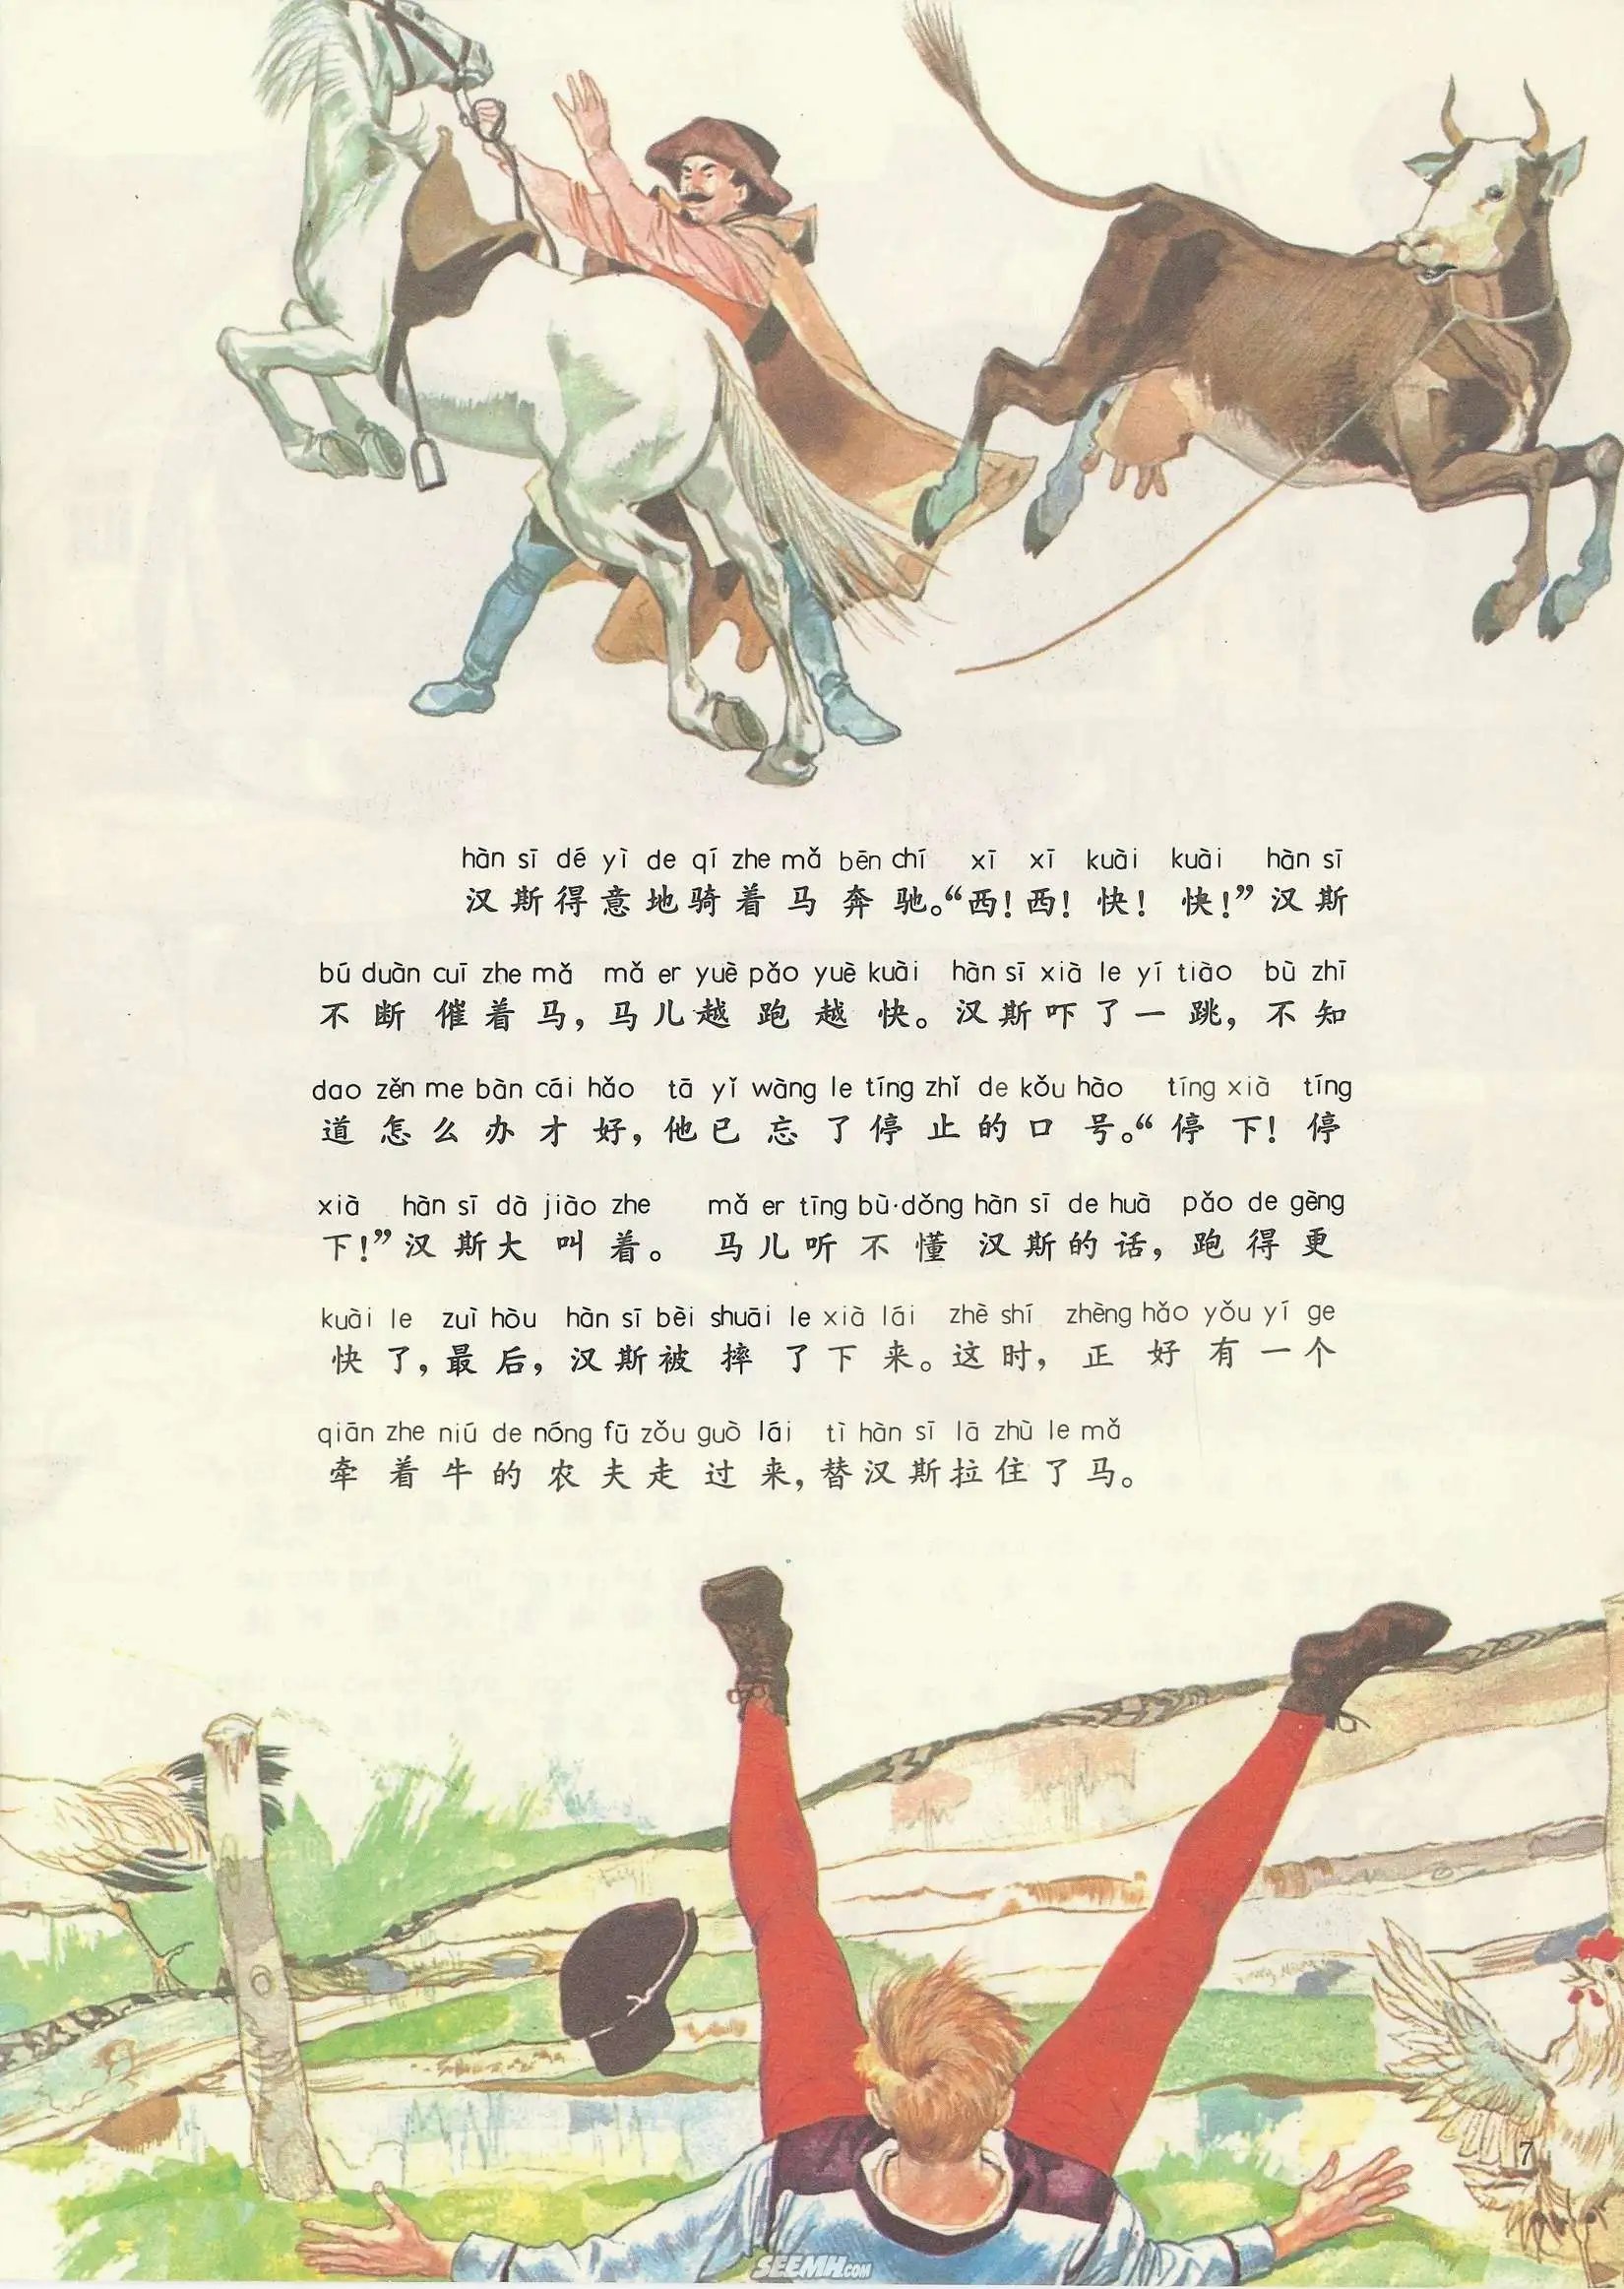 hàn sī dé yì de qí zhe mǎ bēn chí xī xī kuài kuài hàn sī
汉斯得意地骑着马奔驰。“西!西!快!快!”汉斯
bú duàn cuī zhe mǎ mǎ er yuè pǎo yuè kuài hàn sī xià le yí tiào bù zhī
不断催着马,马儿越跑越快。汉斯吓了一跳,不知
dao zěn me bàn cái hǎo tā yǐ wàng le tíng zhǐ de kǒu hào tíng xià tíng
道怎么办才好,他已忘了停止的口号。“停下!停
xià hàn sī dà jiào zhe mǎ er tīng bù·dǒng hàn sī de huà pǎo de gèng
下!”汉斯大叫着。 马儿听不懂汉斯的话,跑得更
kuài le zuì hòu hàn sī bèi shuāi le xià lái zhè shí zhèng hǎo yǒu yí ge
快了,最后,汉斯被摔了下来。这时,正好有一个
qiān zhe niú de nóng fū zǒu guò lái tì hàn sī lā zhù le mǎ
牵着牛的农夫走过来,替汉斯拉住了马。
7
SEEMH.COM